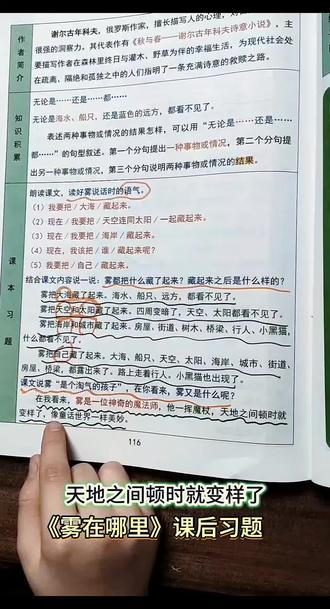 作者简介
谢尔古年科夫，俄罗斯作家，擅长描写人的心理，
很强的洞察力。其代表作有《秋与春——谢尔古年科夫诗意小说》，主
要描写作者在森林里终日与灌木、野草为伴的幸福生活，为现代社会处
在疏离、隔绝和孤独之中的人们指明了一条充满诗意的救赎之路。
知识积累
无论是……还是……都……
无论是海水、船只，还是蓝色的远方，都看不见了。
表述两种事物或情况的结果怎样，可以用“无论是……还是……
都……”的句型叙述。第一个分句提出一种事物或情况，第二个分句提
出另一种事物或情况，第三个分句说明两种事物或情况的结果。
课本习题
朗读课文，读好雾说话时的语气。
（1）我要把/大海/藏起来。
（2）现在/我要把/天空连同太阳/一起藏起来。
（3）现在/我要把/海岸/藏起来。
（4）现在，我该把/谁/藏起来呢？
（5）我要把/自己/藏起来。
结合课文内容说一说：雾都把什么藏了起来？藏起来之后是什么样的？
雾把大海藏了起来。海水、船只、远方，都看不见了。
雾把天空和太阳藏了起来。四周变暗了，天空、太阳都看不见了。
雾把海岸和城市藏了起来。房屋、街道、树木、桥梁、行人、小黑猫，
什么都看不见了。
雾把自己藏了起来。大海、船只、天空、太阳、海岸、城市、街道、
房屋、桥梁，都露出来了。路上走着行人。小黑猫也出现了。
课文说雾“是个淘气的孩子”，在你看来，雾又是什么呢？
在我看来，雾是一位神奇的魔法师，他一挥魔杖，天地之间顿时就
变样了，像童话世界一样美妙。
116
天地之间顿时就变样了
《雾在哪里》课后习题